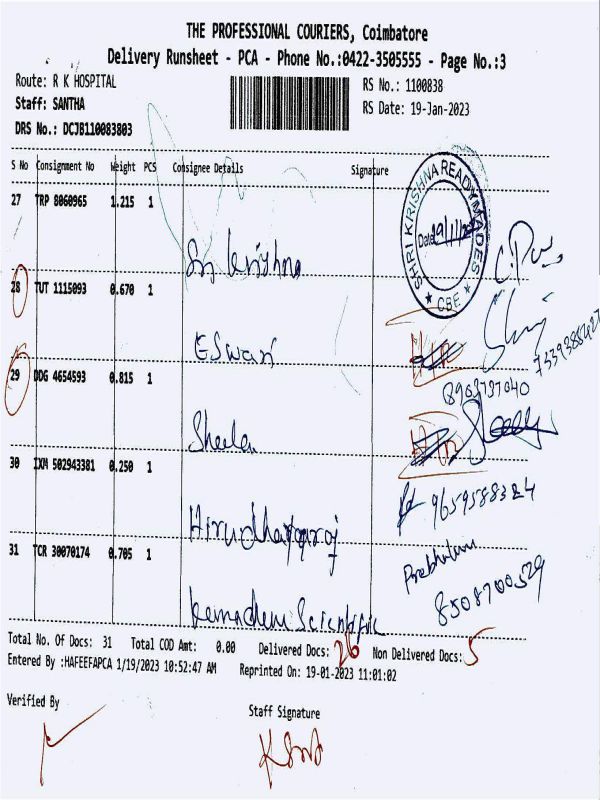 THE PROFESSIONAL COURIERS, Coimbatore
Delivery Runsheet - PCA - Phone No.:0422-3505555 - Page No.:3
Route: R K HOSPITAL
RS No.: 1100838
Staff: SANTHA
RS Date: 19-Jan-2023
DRS No.: DCJB110083803
S No Consignment No Weight PCS Consignee Details Signature
27 TRP 8060965 1.215 1
Sri krishna
SHRI KRISHNA READYMADES
Date 19/1/23
CBE
28 TUT 1115093 0.670 1
Eswari
7339385427
29 DDG 4654593 0.815 1
8903737040
Sheela
30 IXM 502943381 0.250 1
9659588324
Hirudhayaraj
31 TCR 30070174 0.705 1
Prabhakaran
8508700529
Scientific
Total No. Of Docs: 31 Total COD Amt: 0.00 Delivered Docs: 26 Non Delivered Docs: 5
Entered By :HAFEEFAPCA 1/19/2023 10:52:47 AM Reprinted On: 19-01-2023 11:01:02
Verified By
Staff Signature